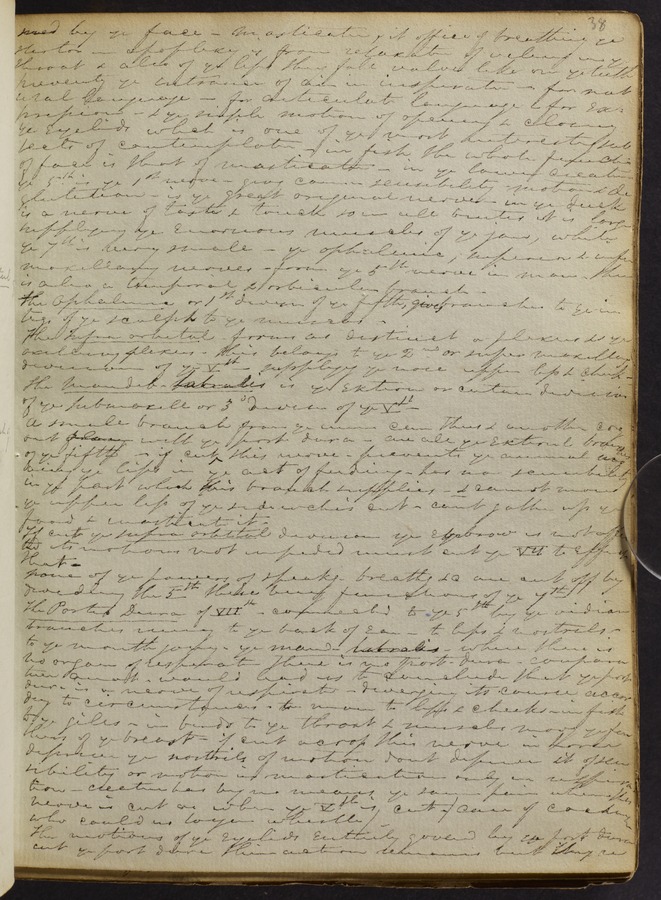 38
by ye face - Mastication, it office of breathing ye
- apoplexy is from relaxation of velum in ye
throat & also of ye lips thus fall valves like on ye teeth
prevents ye entrance of air in inspiration - for nat
ural language - for articulate language & for ex-
pression - & ye simple motion of opening & closing
ye Eyelids what is one of ye most interesting sub
jects of contemplation - in fish the whole function
of face is that of mastication - in ye lower creation
ye 5th is ye 1st nerve - gives common sensibility motion & de
glutition - is ye great original nerve - in ye
is a nerve of taste & touch so in all brutes it is large
supplying ye Enormous muscles of ye jaw, while
ye 7th is very small - ye opthalmic, superior & infer
maxillary nerves - from ye 5th nerve in man. there
is also a temporal & orbicular branch -
The Opthalmic or 1st division of ye fifth, gives branches to ye in
teg. of ye scalp & to ye muscles -
The Supra orbital - forms as distinct a plexus as ye
axillary plexus - this belongs to ye 2nd or super maxillary
division of ye Vth supplying ye nose upper lip & cheek -
The Mandib- Labialis is ye Extion or certain division
of ye Submaxill or 3d division of ye Vth -
A small branch from ye in can thus & another com
out with ye port dura - are all ye External branches
of ye fifth - if cut this nerve - prevents ye animal
ye lips in ye act of feeding - has no sensibility
in ye part which this branch supplies - & cannot move
ye upper lip of ye side which is cut - cant gather up ye
food & masticate it -
If cut ye supra orbital division ye Eyebrow is not
its motions not impeded must cut ye VII to Effect
that -
none of ye powers of speaking breathing &c are cut off by
dividing the 5th these being functions of ye 7th
The Portio Dura of VIIth - connected to ye 5th by ye vidian
branches running to ye back of Ear - to lips & nostrils -
to ye mouth going - ye mand labialis - where there is
no organ of respirat there is no port dura compara
tive anat. would lead us to conclude that ye port
dura is a nerve of respirat - diverging its course accor
ding to circumstances - in man to lips & cheeks - in fish
to ye gills - in birds to ye throat & muscles
of ye breast - if cut across this nerve in horse
deprives ye nostrils of motion dont deprive it of sen
sibility or motion in mastication only in respira
tion - creature has by no means ye same pain when
nerve is cut as when ye Vth is cut / case of
who could no longer whistle /
The motions of ye Eyelids Entirely govend by ye port dura
cut ye port dura their action remains but they